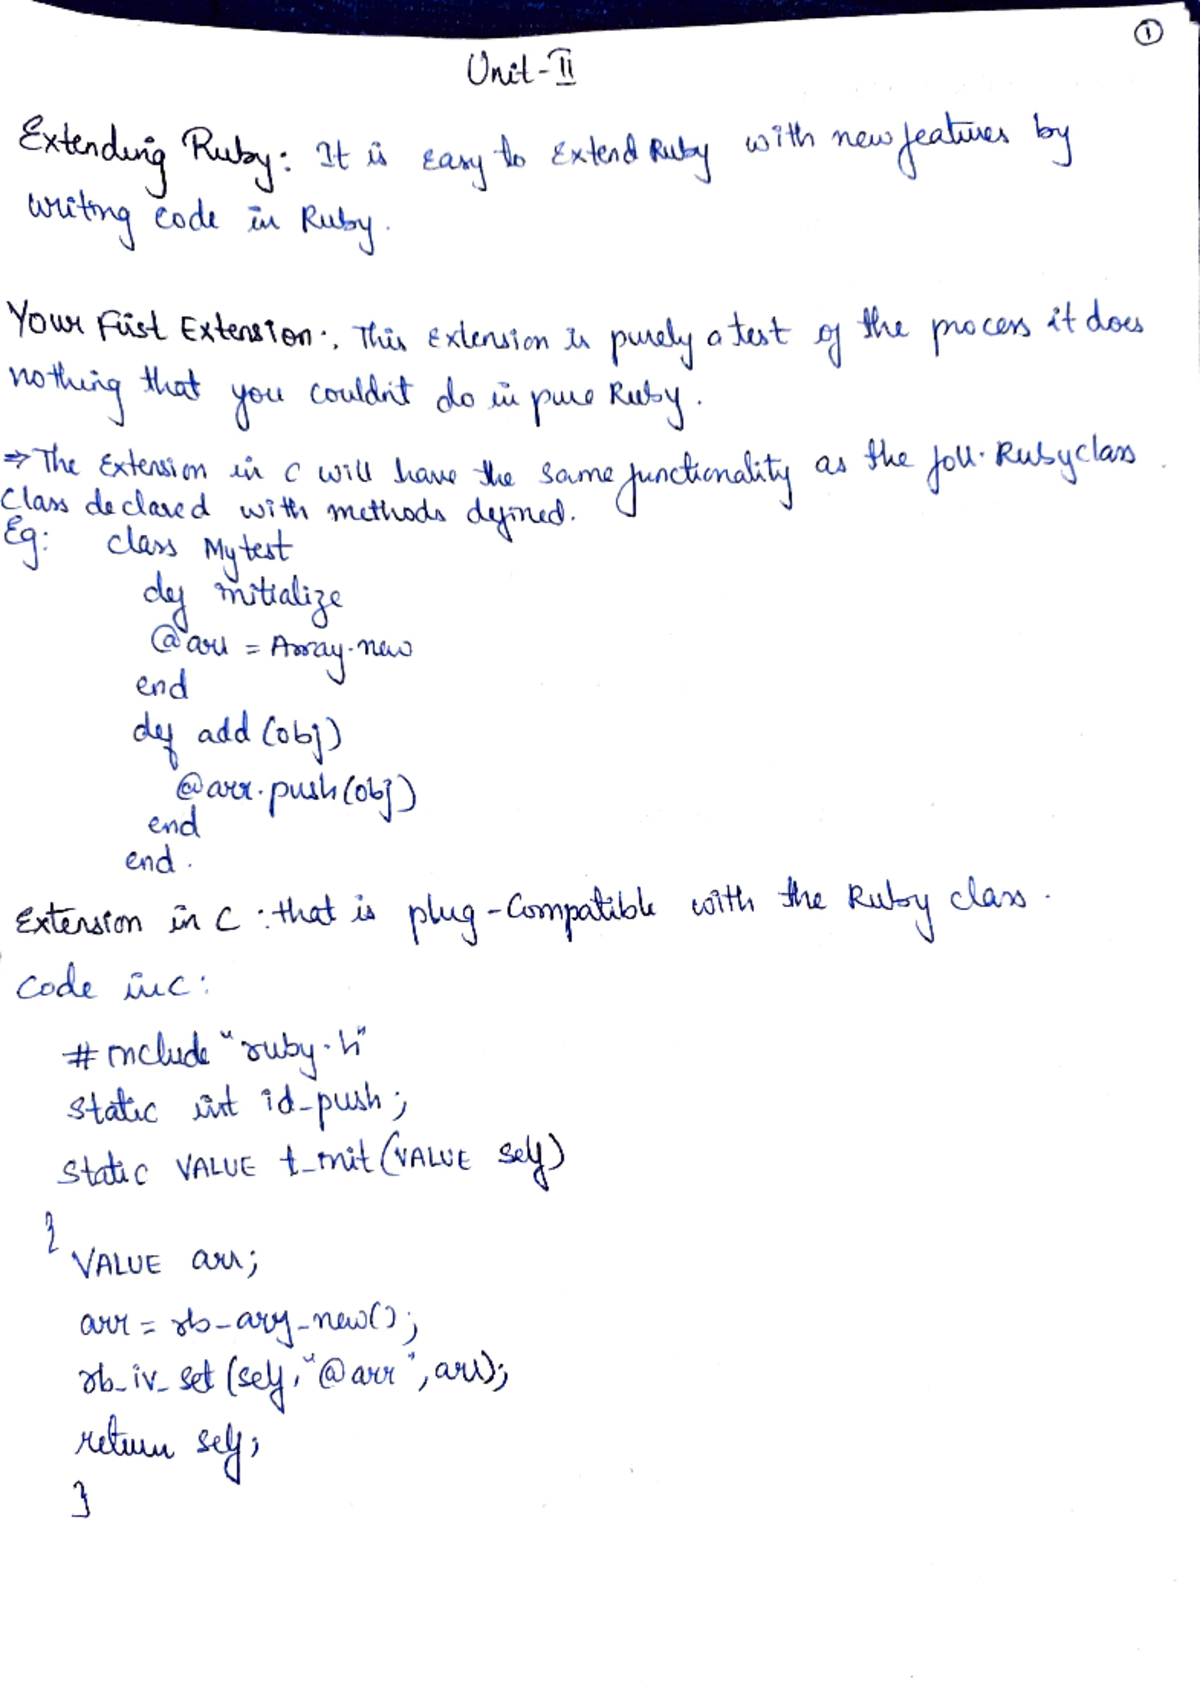 1
Unit-II
Extending Ruby: It is easy to Extend Ruby with new features by
writing code in Ruby.
Your First Extension:. This extension is purely a test of the process it does
nothing that you couldn't do in pure Ruby.
⇒ The Extension in C will have the same functionality as the foll. Ruby class.
Class declared with methods defined.
Eg: class Mytest
def initialize
@arr = Array.new
end
def add (obj)
@arr.push(obj)
end
end.
Extension in C : that is plug-Compatible with the Ruby class.
Code in C:
#include "ruby.h"
static int id_push;
static VALUE t_init(VALUE self)
{
VALUE arr;
arr = rb_ary_new();
rb_iv_set (self,"@arr",arr);
return self;
}